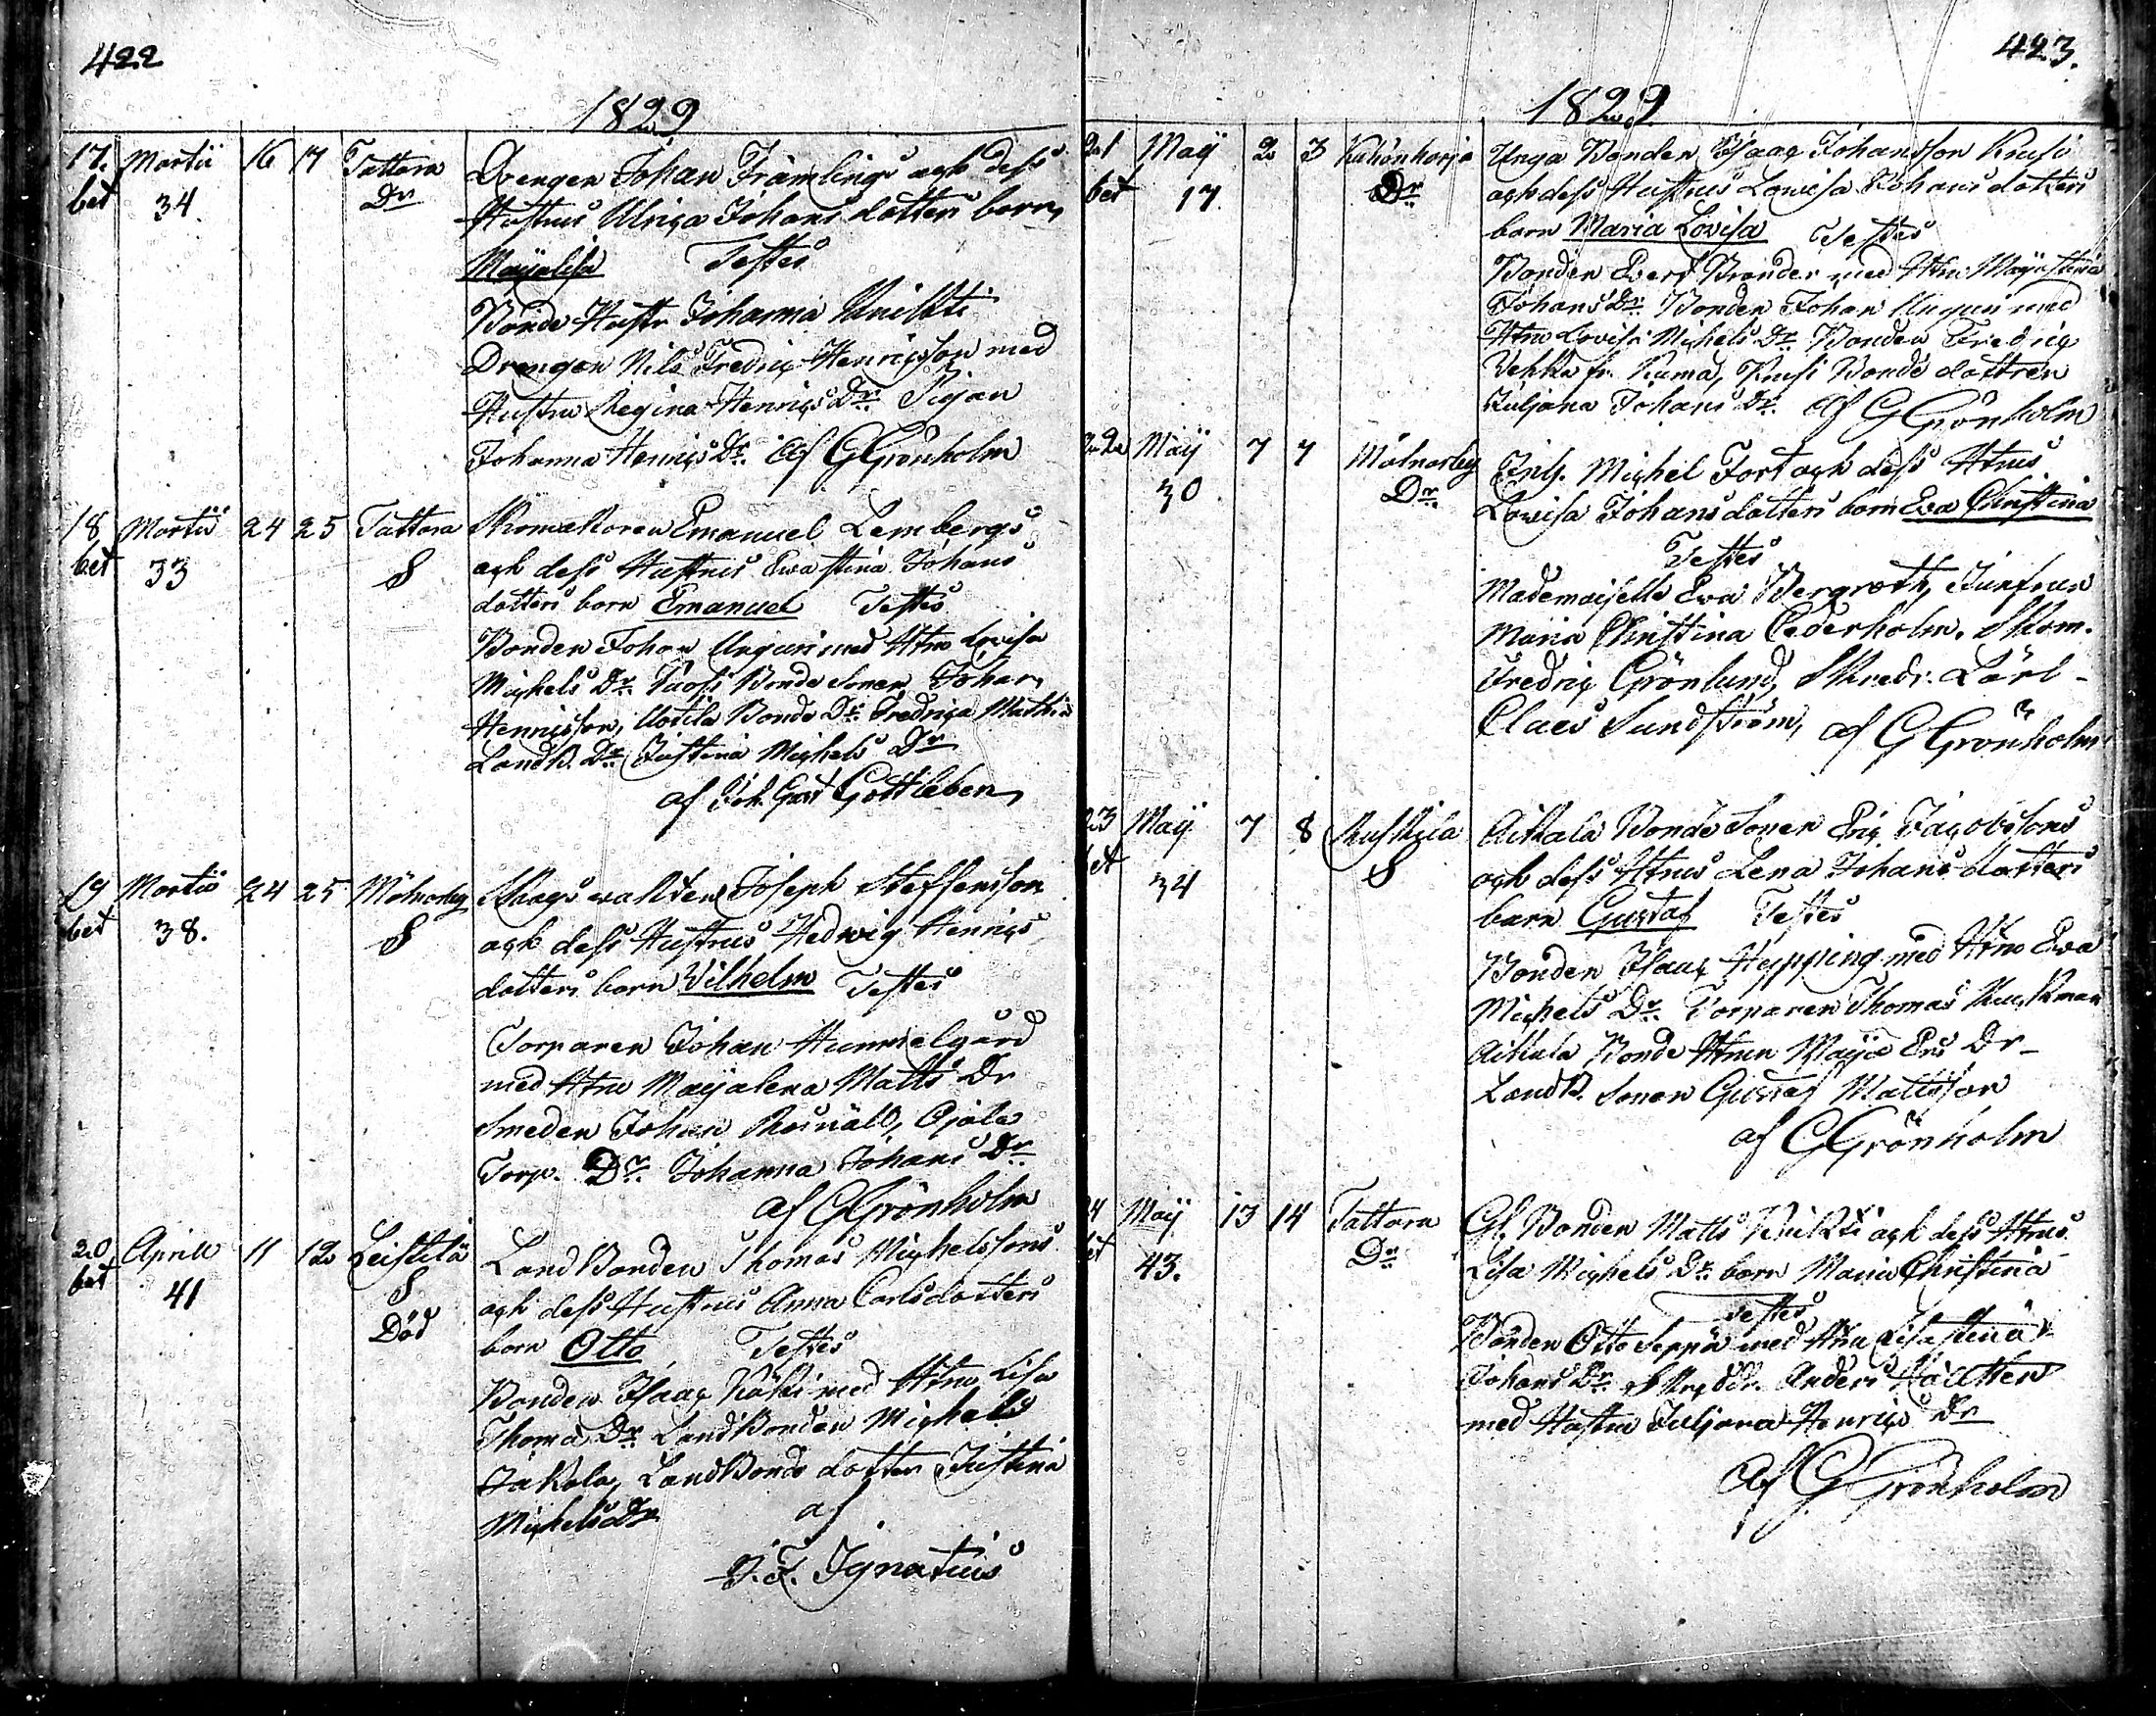 422
1829
17. Martii 16 17 Tattara Drengen Johan Främlings och dess
bet 34 Dr Hustrus Ulrica Johans dotters barn
Majalisa Testes
Bonde Hustr Johanna
Drengen Nils Fredric Henricsson med
Hustru Regina Henrics Dr. Pigan
Johanna Henrics Dr. Af G Grönholm
18 Martii 24 25 Tattara Skomakaren Emanuel Lembergs
bet 33 S och dess Hustrus Evastina Johans
dotters barn Emanuel Testes
Bonden Johan Unguri med Htru Lovisa
Michels Dr. Bonde Sonen Johan
Henricsson, Uotila Bonde Dr. Fredrica Mathia
Landb. Dr Justina Michels Dr
af Joh. Gust Gottleben
19 Martii 24 25 Mölnarby Skogs vakten Joseph Steffensson
bet 38. S och dess Hustrus Hedwig Henrics
dotters barn Vilhelm Testes
Torparen Johan Hummelgård
med Htru Majalena Matts Dr
Smeden Johan Ojala
Torp. Dr. Johanna Johans Dr
af G Grönholm
20 Aprill 11 12 Leistilä Land Bonden Thomas Michelssons
bet 41 S och dess Hustrus Anna Carlsdotters
Död barn Otto Testes
Bonden Isaac med Htru Lisa
Thomæ Dr LandBonden Michel
Jakola, LandBonde dotter Justina
Michels Dr af
J. F. Ignatius
423.
1829
21 Maij 2 3 Kukonharja Unga Bonden Isaac Johansson Krusi
bet 17. Dr och dess Hustrus Lovisa Johans dotters
barn Maria Lovisa Testes
Bonden Evert Brander med Htru Majastina
Johans Dr. Bonden Johan Unguri med
Htru Lovisa Michels Dr Bonden Fredric
fr. Krusi Bonde dottren
Juljana Johans Dr. Af G Grönholm
22 Maij 7 7 Mölnarby Inh. Michel Fort och dess Htrus
30 Dr. Lovisa Johans dotters barn Eva Christina
Testes
Mademoiselle Eva Bergroth, Jungfrun
Maria Christina Cederholm. Skom.
Fredric Grönlund, Skredr. Lärl-
Claes Sundström, af G Grönholm
23 Maij 7 8 Ruskila Aittala Bonde Sonen Eric Jacobssons
bet 34 S och dess Htrus Lena Johans dotters
barn Gustaf Testes
Bonden Isaac Hypping med Htru Eva
Michels Dr. Torparen Thomas
Aittala Bonde Htrun Maja Ers Dr-
Landb. Sonen Gustaf Mattsson
af G Grönholm
24 Maij 13 14 Tattara Gl. Bonden Matts och dess Htrus
bet 43. Dr Lisa Michels Dr. barn Maria Christina
Testes
Bonden Otto Seppä med Htru Lisastina
Johans Dr. Anders
med Hustru Juljana Henrics Dr
Af G Grönholm